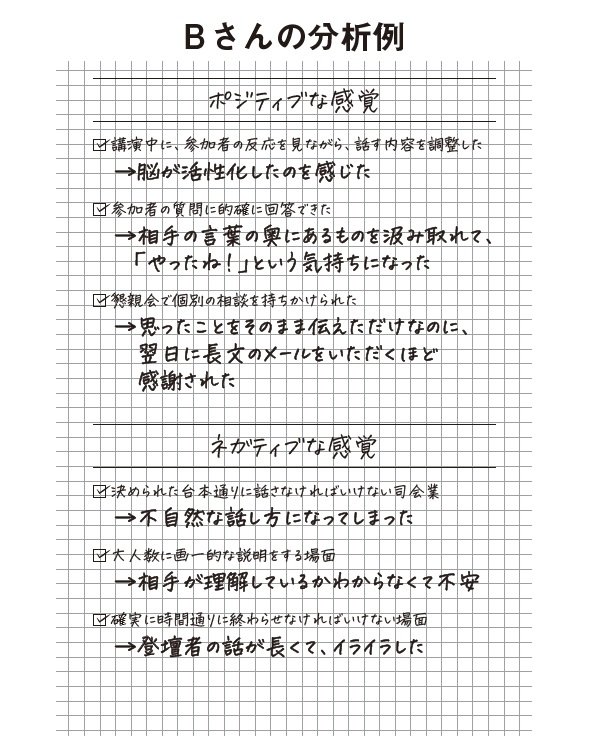 Bさんの分析例
ポジティブな感覚
☑講演中に、参加者の反応を見ながら、話す内容を調整した
→脳が活性化したのを感じた
☑参加者の質問に的確に回答できた
→相手の言葉の奥にあるものを汲み取れて、
「やったね！」という気持ちになった
☑懇親会で個別の相談を持ちかけられた
→思ったことをそのまま伝えただけなのに、
翌日に長文のメールをいただくほど
感謝された
ネガティブな感覚
☑決められた台本通りに話さなければいけない司会業
→不自然な話し方になってしまった
☑大人数に画一的な説明をする場面
→相手が理解しているかわからなくて不安
☑確実に時間通りに終わらせなければいけない場面
→登壇者の話が長くて、イライラした